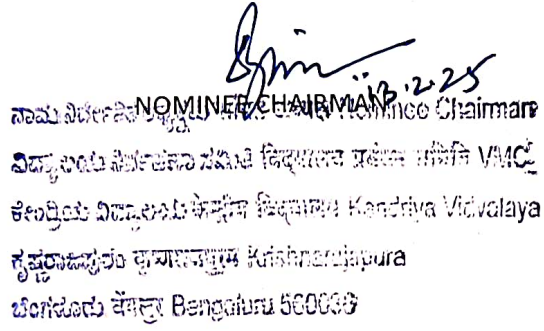 13.12.25
NOMINEE CHAIRMAN
ನಾಮ ನಿರ್ದೇಶಿತ Nominee Chairman
ವಿದ್ಯಾಲಯ ನಿರ್ವಹಣಾ ಸಮಿತಿ विद्यालय प्रबंधन समिति VMC
ಕೇಂದ್ರಿಯ ವಿದ್ಯಾಲಯ केन्द्रीय विद्यालय Kendriya Vidyalaya
ಕೃಷ್ಣರಾಜಪುರಂ Krishnarajapura
ಬೆಂಗಳೂರು बेंगलूर Bengaluru 560036